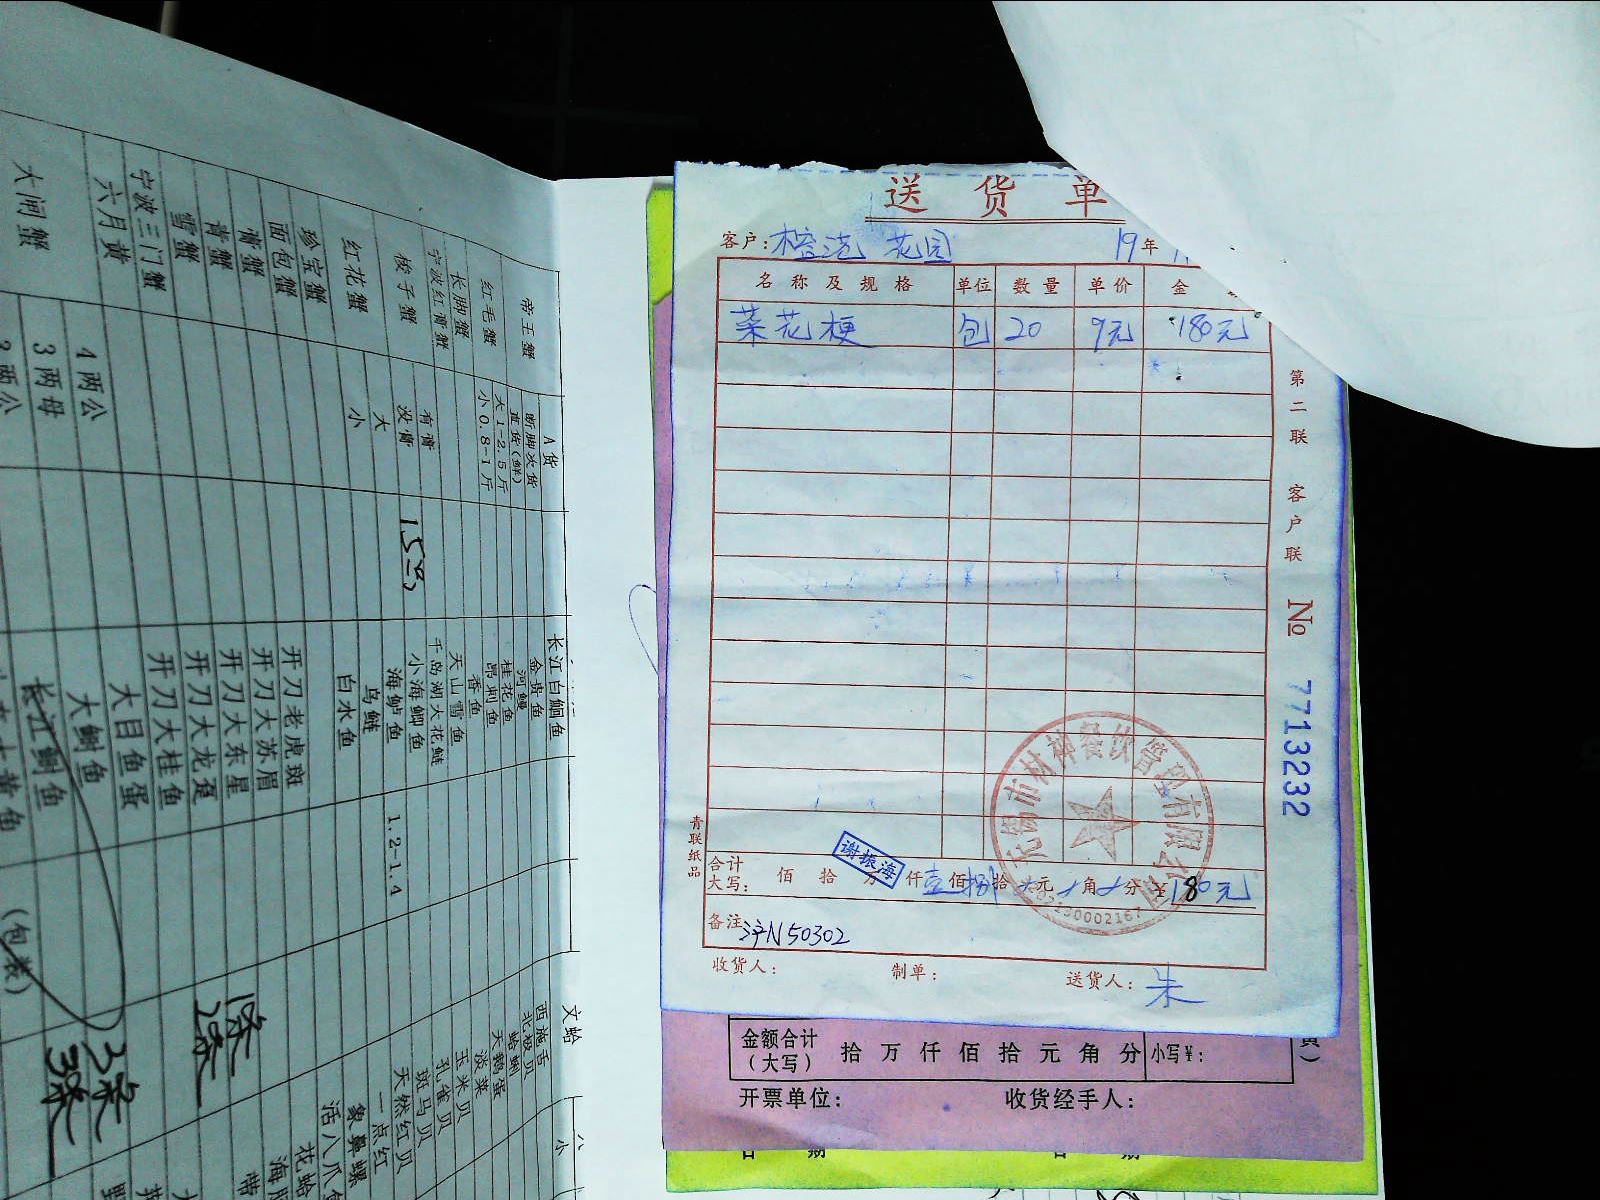 送货单
客户: 榕港 花园 19年
名称及规格 单位 数量 单价 金
菜花梗 包 20 9元 180元
第二联 客户联
№ 7713232
无锡市材神餐饮管理有限公司
谢振海
青联纸品
合计大写: 佰 拾 万 仟 壹佰 捌拾 元 角 分 180元
备注 沪N50302
收货人: 制单: 送货人: 朱
金额合计(大写) 拾 万 仟 佰 拾 元 角 分 小写¥:
开票单位: 收货经手人:
日 期 日 期
帝王蟹 A货
断脚次货
直货(鲜)
红毛蟹 大1-2.5斤
小0.8-1斤
长脚蟹
宁波红膏蟹 有膏
梭子蟹 没膏 150
红花蟹 大
小
珍宝蟹
面包蟹
膏蟹
青蟹
雪蟹
宁波三门蟹
六月黄
大闸蟹 4两公
3两母
3两公
长江白鮰鱼
金贵鱼
河鳗
桂花鱼
昂刺鱼
香鱼
天山雪鱼
千岛湖大花鲢
小海鲫鱼
海鲈鱼 1.2-1.4
乌鲢
白水鱼
开刀老虎斑
开刀大苏眉
开刀大东星
开刀大龙趸
开刀大桂鱼
大目鱼蛋
大鲥鱼
长江鲥鱼
(包装)
1条
2条
3条
3条
文蛤
西施舌
北极贝
蛤蜊
天鹅蛋
淡菜
玉米贝
孔雀贝
斑马贝
天然红贝
一点红
象鼻螺
活八爪鱼
花蛤
八
小